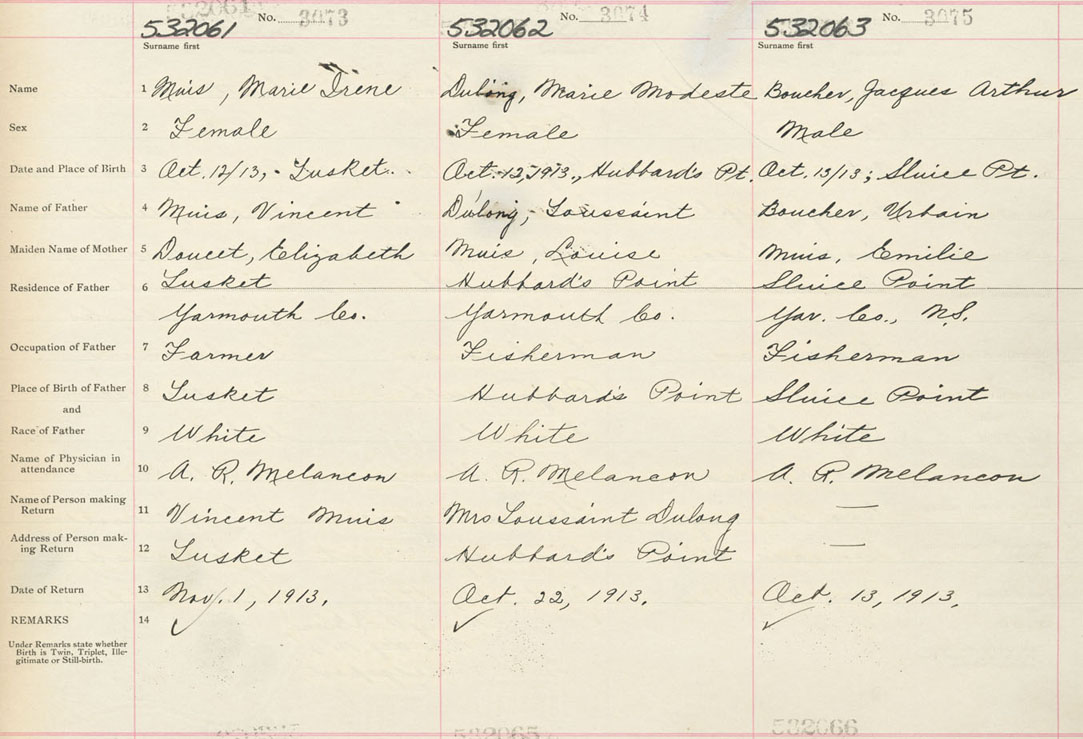 532061 No. 3073 532062 No. 3074 532063 No. 3075
Surname first Surname first Surname first
Name 1 Muis, Marie Irene Dulong, Marie Modeste Boucher, Jacques Arthur
Sex 2 Female Female Male
Date and Place of Birth 3 Oct. 12/13, - Tusket. Oct. 12, 1913., Hubbard's Pt. Oct. 13/13; Sluice Pt.
Name of Father 4 Muis, Vincent Dulong, Toussaint Boucher, Urbain
Maiden Name of Mother 5 Doucet, Elizabeth Muis, Louise Muis, Emilie
Residence of Father 6 Tusket Hubbard's Point Sluice Point
Yarmouth Co. Yarmouth Co. Yar. Co., N.S.
Occupation of Father 7 Farmer Fisherman Fisherman
Place of Birth of Father 8 Tusket Hubbard's Point Sluice Point
and
Race of Father 9 White White White
Name of Physician in
attendance 10 A. R. Melancon A. R. Melancon A. R. Melancon
Name of Person making
Return 11 Vincent Muis Mrs Toussaint Dulong —
Address of Person mak-
ing Return 12 Tusket Hubbard's Point —
Date of Return 13 Nov. 1, 1913. Oct. 22, 1913. Oct. 13, 1913.
REMARKS 14
Under Remarks state whether
Birth is Twin, Triplet, Ille-
gitimate or Still-birth.
532065 532066